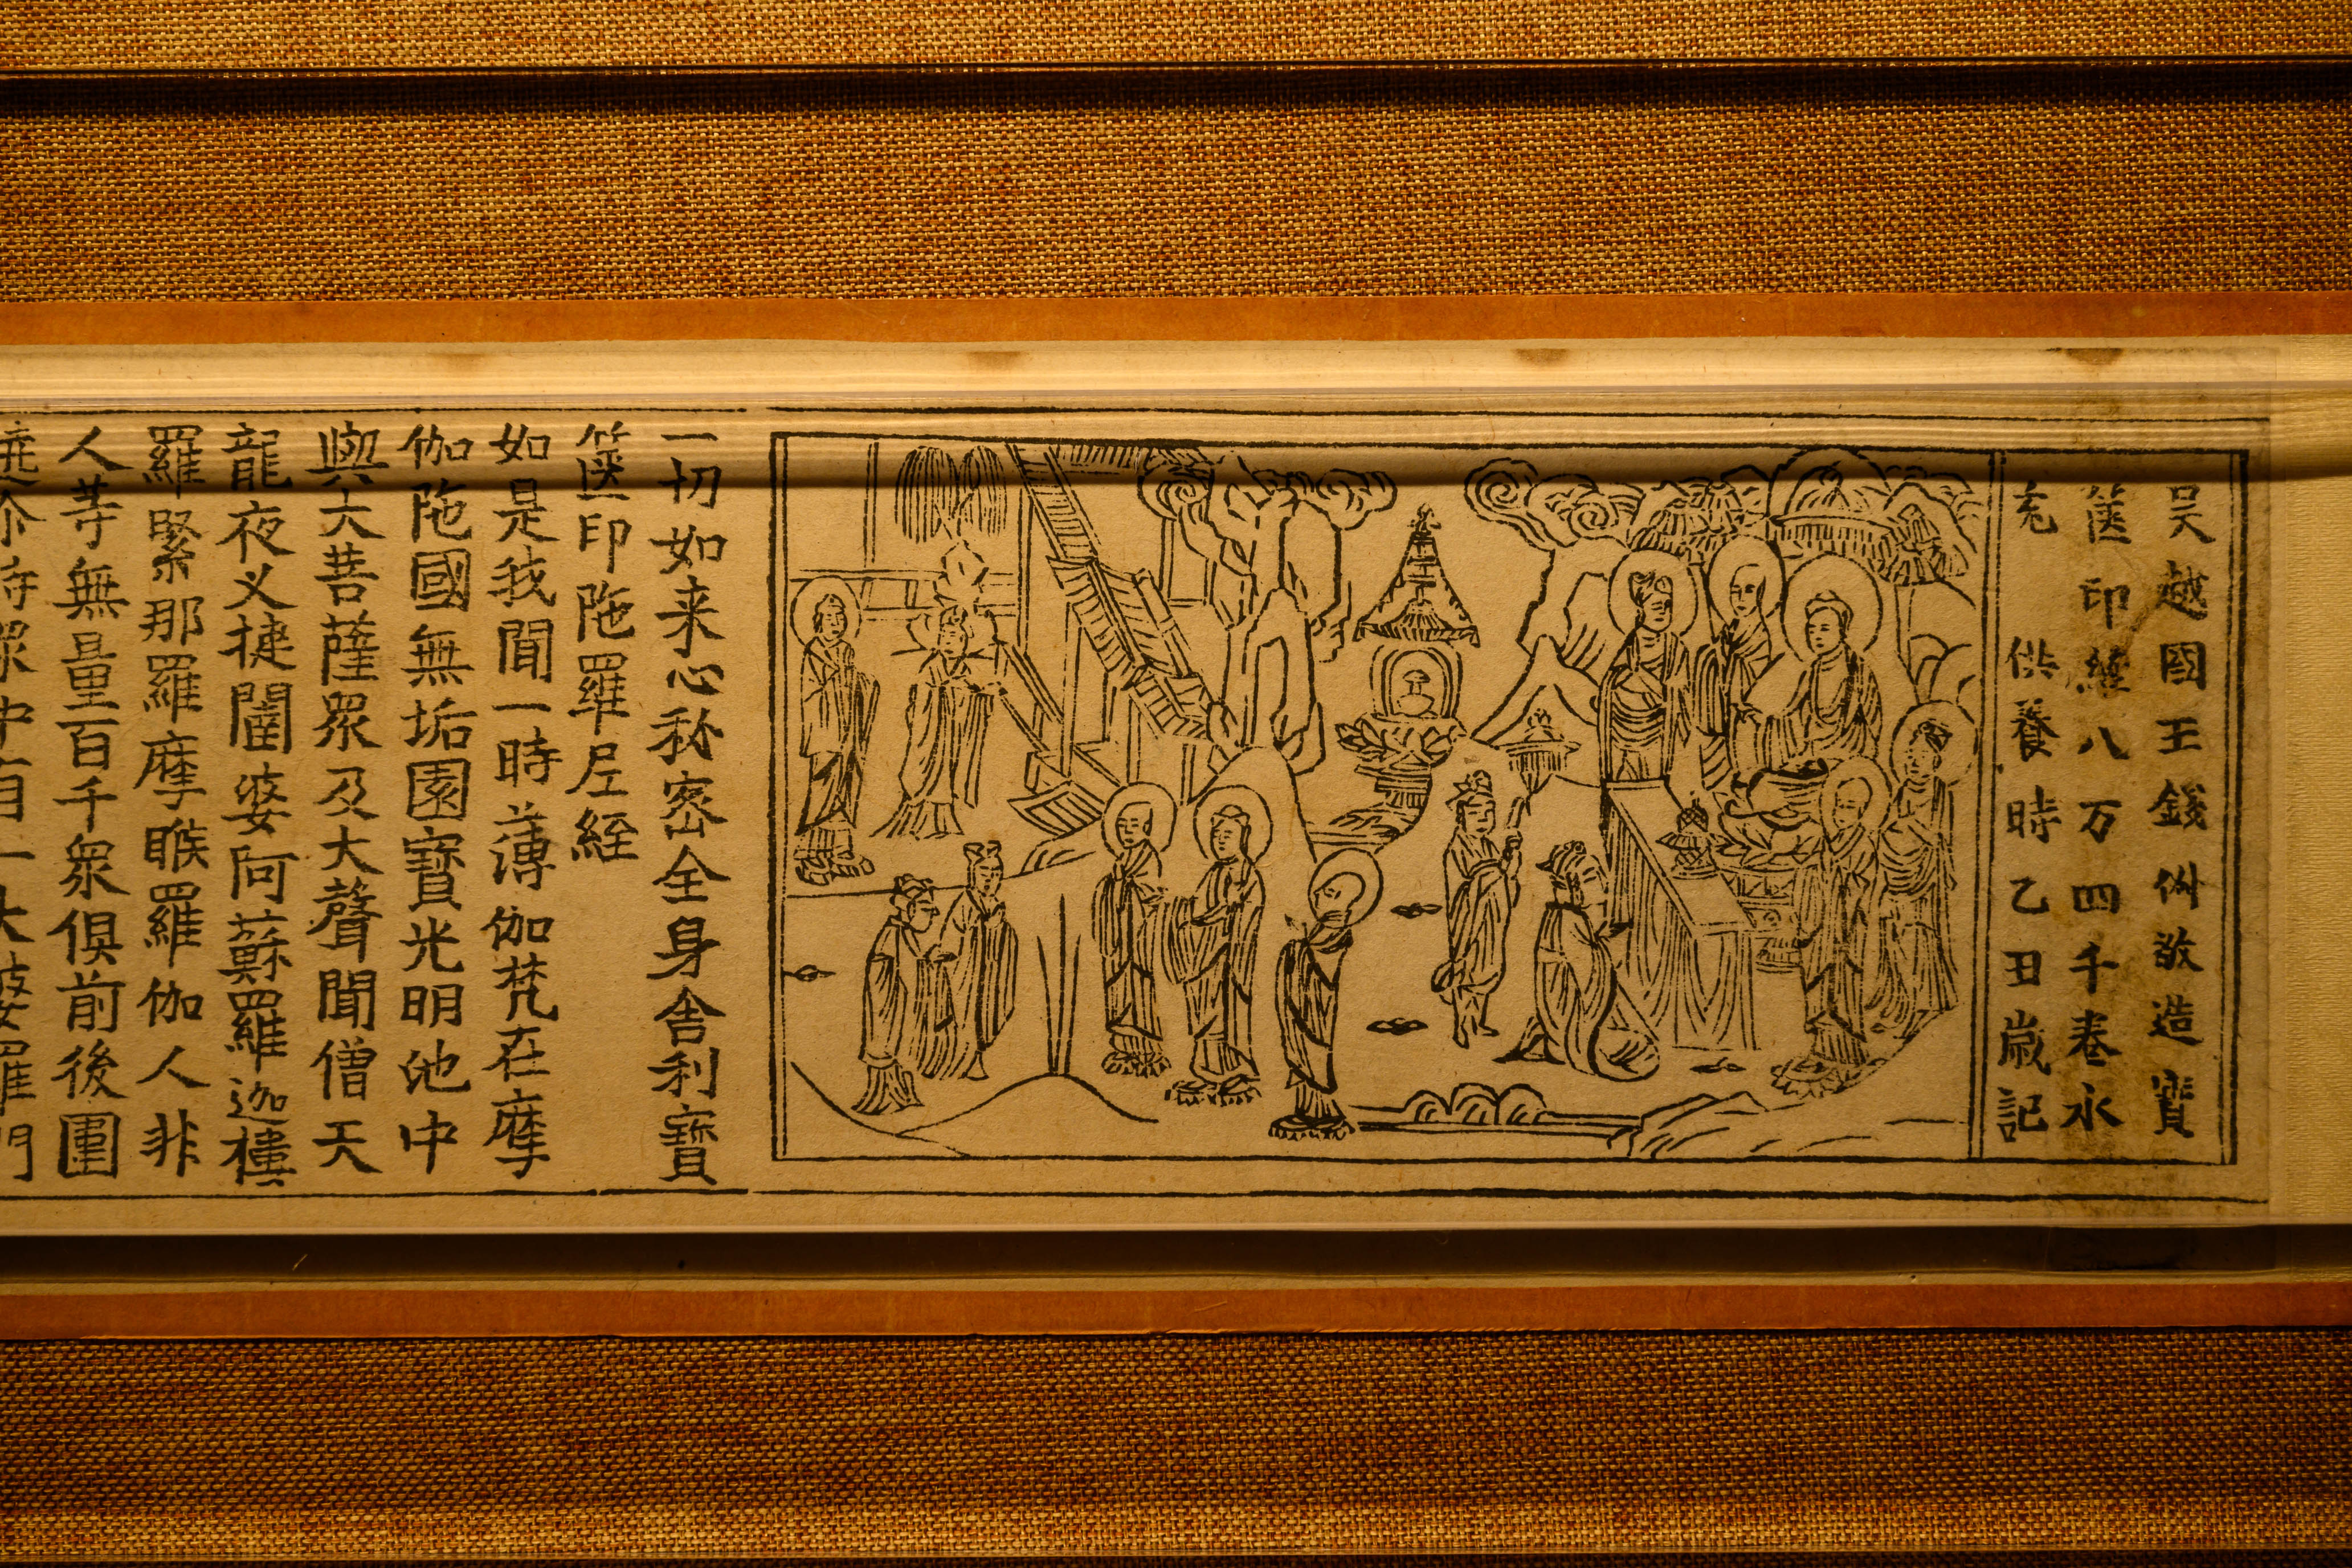 吳越國王錢俶敬造寶
篋印經八万四千卷永
充供養時乙丑歲記
一切如来心秘密全身舍利寶
篋印陁羅尼經
如是我聞一時薄伽梵在摩
伽陁國無垢園寶光明池中
與大菩薩眾及大聲聞僧天
龍夜义揵闥婆阿蘇羅迦樓
羅緊那羅摩睺羅伽人非
人等無量百千眾俱前後圍